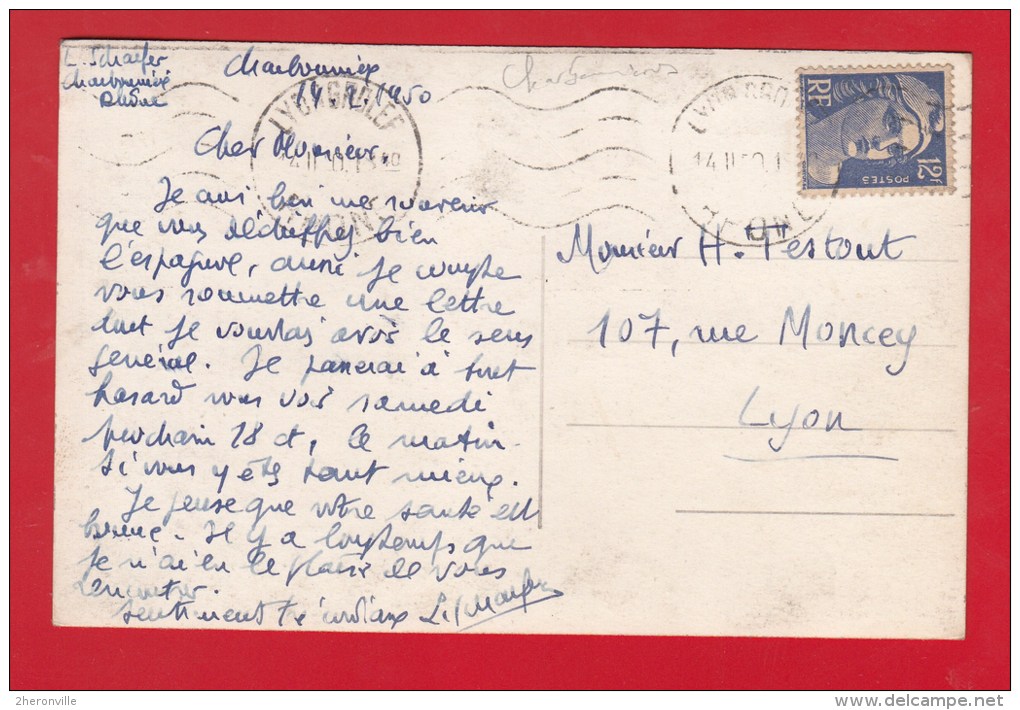 L. Schaefer
Charbonnières
Rhône
Charbonnières
14.2.1950
Charbonnières
LYON GROLEE
14 II
RHONE
LYON GRO
14.II
RHONE
RF
POSTES
12F
Cher Monsieur,
Je suis bien me souvenir
que vous déchiffrez bien
l'espagnol, aussi je compte
vous soumettre une lettre
dont je voudrais avoir le sens
général. Je passerai à tout
hasard vous voir samedi
prochain 18 ct, le matin.
Si vous y êtes tant mieux.
Je pense que votre santé est
bonne. Il y a longtemps que
je n'ai eu le plaisir de vous
rencontrer.
Sentiments très cordiaux L. Schaefer
Monsieur H. Testout
107, rue Moncey
Lyon
2heronville
delcampe.net